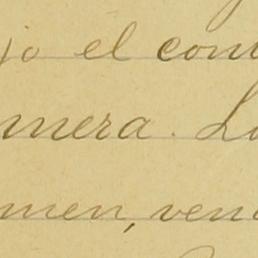 jo él con
mera. L
men, ven